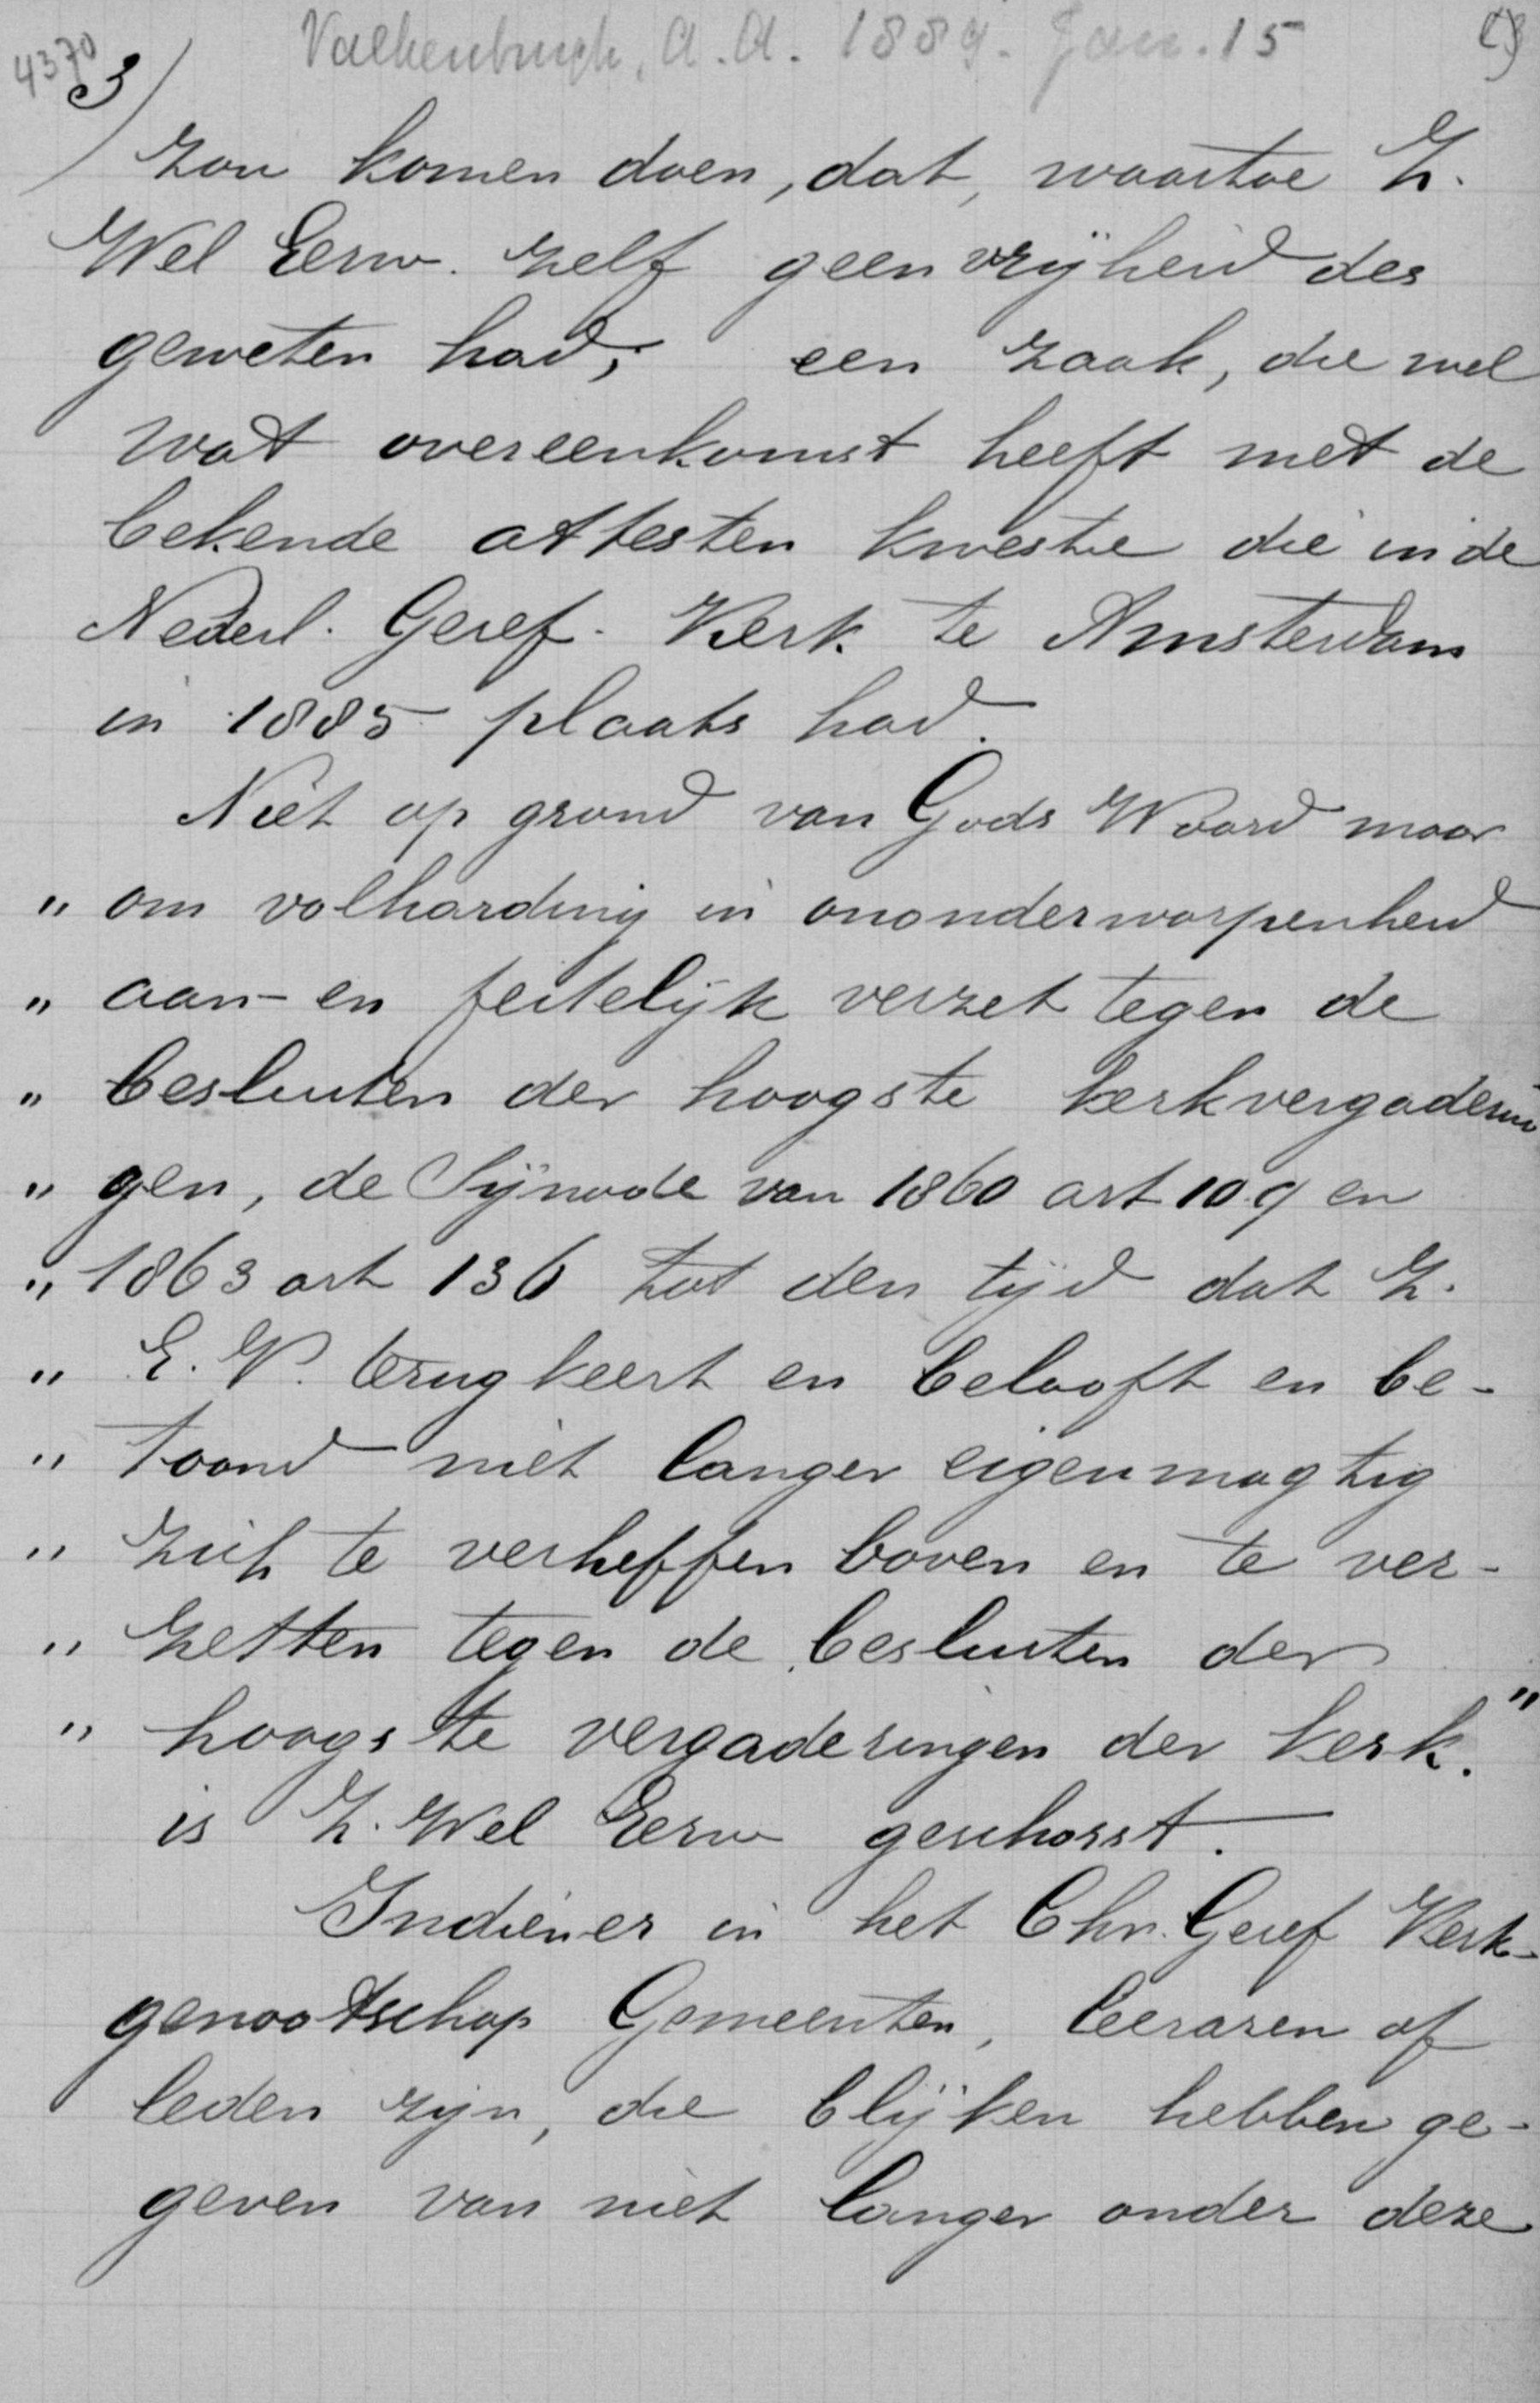 4370 Valkenburgh, A. A. 1889. Jan. 15
3)
zou komen doen, dat, waartoe Z.
Wel Eerw. zelf geen vrijheid des
geweten had; een zaak, die wel
wat overeenkomst heeft met de
bekende attesten kwestie die in de
Nederl. Geref. Kerk te Amsterdam
in 1885 plaats had.
Niet op grond van Gods Woord maar
" om volharding in ononderworpenheid
" aan- en feitelijk verzet tegen de
" besluiten der hoogste kerkvergaderin
" gen, de Synode van 1860 art 109 en
" 1863 art 136 tot den tijd dat Z.
" E. W. terugkeert en belooft en be-
" toond niet langer eigenmagtig
" zich te verheffen boven en te ver-
" zetten tegen de besluiten der
" hoogste vergaderingen der kerk."
is Z. Wel Eerw geschorst.
Indien er in het Chr. Geref Kerk-
genootschap Gemeenten, leeraren of
leden zijn, die blijken hebben ge-
geven van niet langer onder deze